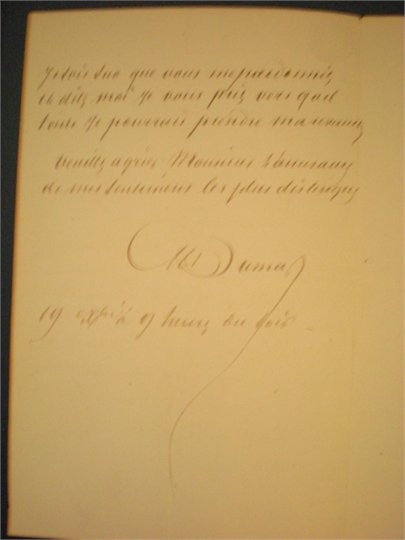 que vous me pardonnez
et dites moi je vous prie vers quelle
heure je pourrais prendre ma revanche
Veuillez agréer Monsieur l'assurance
de mes sentiments les plus distingués
Dumas
19 à 9 heures du soir